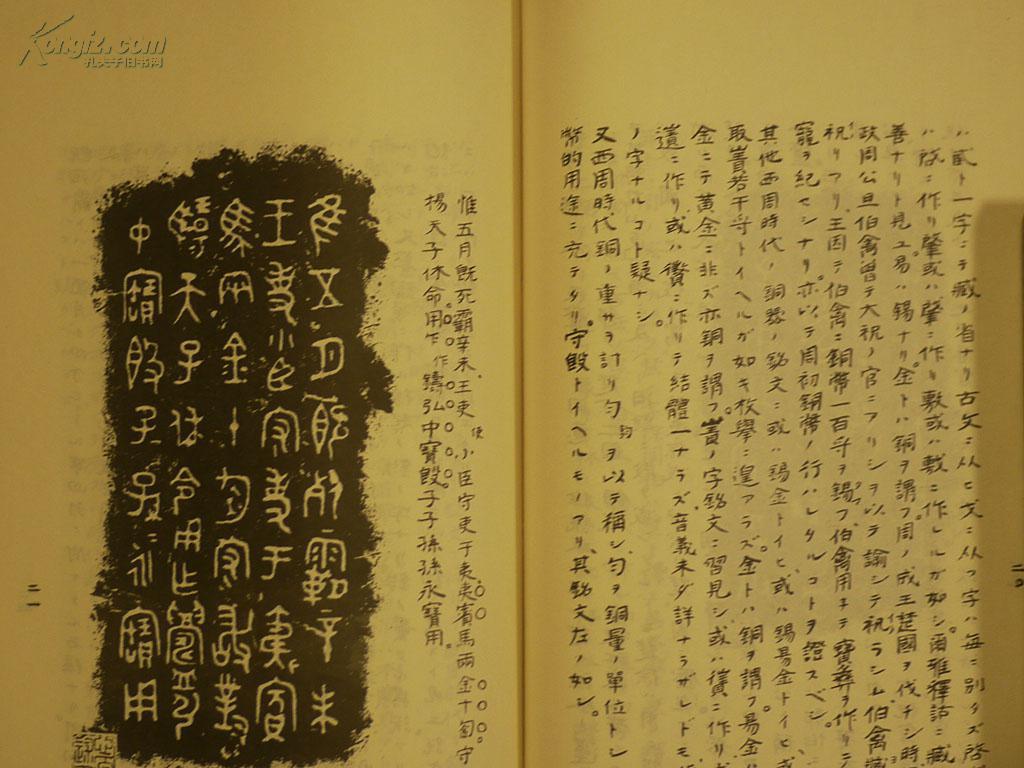 ハ貳ト一字ニテ臧ノ省ナリ古文ニ从ヒ戈ニ从フ字ハ毎ニ別タズ啓
ハ啓ニ作リ肇或ハ肈ニ作リ敷或ハ敷ニ作レルガ如シ爾雅釋詁ニ臧
善ナリト見ユ易ハ錫ナリ金トハ銅ヲ謂フ周ノ成王楚國ヲ伐チシ時
政周公旦伯禽曽テ大祝ノ官ニアリシヲ以テ諭シテ祝ラシム伯禽臧
祝リアリ王因テ伯禽ニ銅幣一百寽ヲ錫フ伯禽用キテ寶彝ヲ作リテ
寵ヲ紀セシナリ亦以テ周初銅幣ノ行ハレタルコトヲ證スベシ
其他西周時代ノ銅器ノ銘文ニ或ハ錫金トイヒ或ハ錫易金トイヒ或
取 若干寽トイヘルガ如キ枚擧ニ遑アラズ金トハ銅ヲ謂フ易金ハ
金ニテ黄金ニ非ズ亦銅ヲ謂フ ノ字銘文ニ習見シ或ハ償ニ作リ
遺ニ作リ或ハ ニ作リテ結體一ナラズ音義未ダ詳ナラザレドモ
ノ字ナルコト疑ナシ。
又西周時代銅ノ重サヲ計リ勻鈞ヲ以テ稱シ勻ヲ銅量ノ單位トシ
幣的用途ニ充テタリ。守 トイヘルモノアリ其銘文左ノ如シ。
惟五月既死霸辛未、王吏使小臣守吏于夷夷賓馬兩金十匍守
楊天子休命用作 作鑄弘中寶 子子孫孫永寶用。
隹五月既死霸辛未
王吏小臣守吏于夷賓
馬兩金十勻守敢對
天子休令用乍鑄弓
中寶 子子孫永寶用
二〇
二一
Kongfz.com
孔夫子旧书网